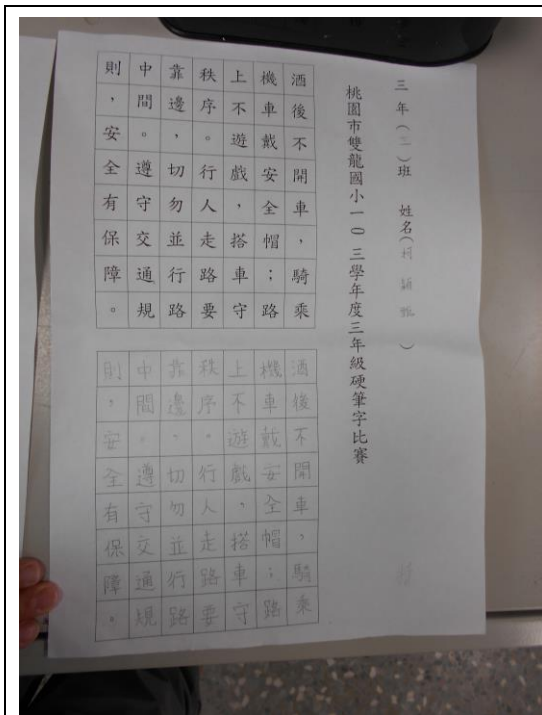 桃園市雙龍國小一〇三學年度三年級硬筆字比賽
三年(三)班 姓名(柯穎)
酒後不開車，騎乘
機車戴安全帽；路
上不遊戲，搭車守
秩序。行人走路要
靠邊，切勿並行路
中間。遵守交通規
則，安全有保障。
酒後不開車，騎乘
機車戴安全帽；路
上不遊戲，搭車守
秩序。行人走路要
靠邊，切勿並行路
中間。遵守交通規
則，安全有保障。